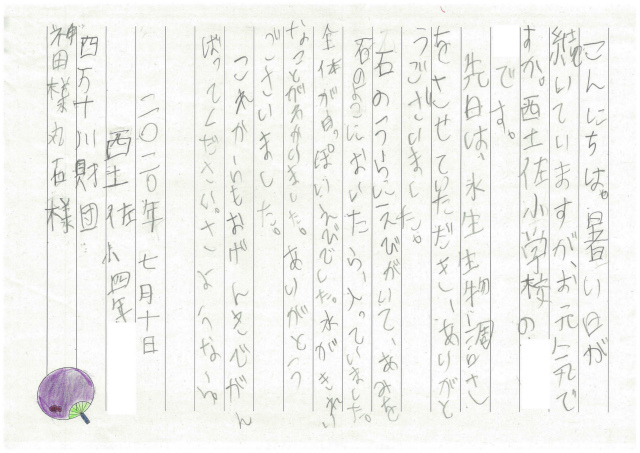 こんにちは。暑い日が
続いていますが、お元気で
すか。西土佐小学校の
です。
先日は、水生生物調さ
をさせていただき、ありがと
うございました。
石のうらにえびがいて、あみを
石のよこにおいたら、入っていました。
全体が白っぽいえびでした。水がきれい
なことがわかりました。ありがとう
ございました。
これからもおげんきでがん
ばってください。さようなら。
二〇二〇年 七月十日
西土佐小四年
四万十川財団
神田様丸石様